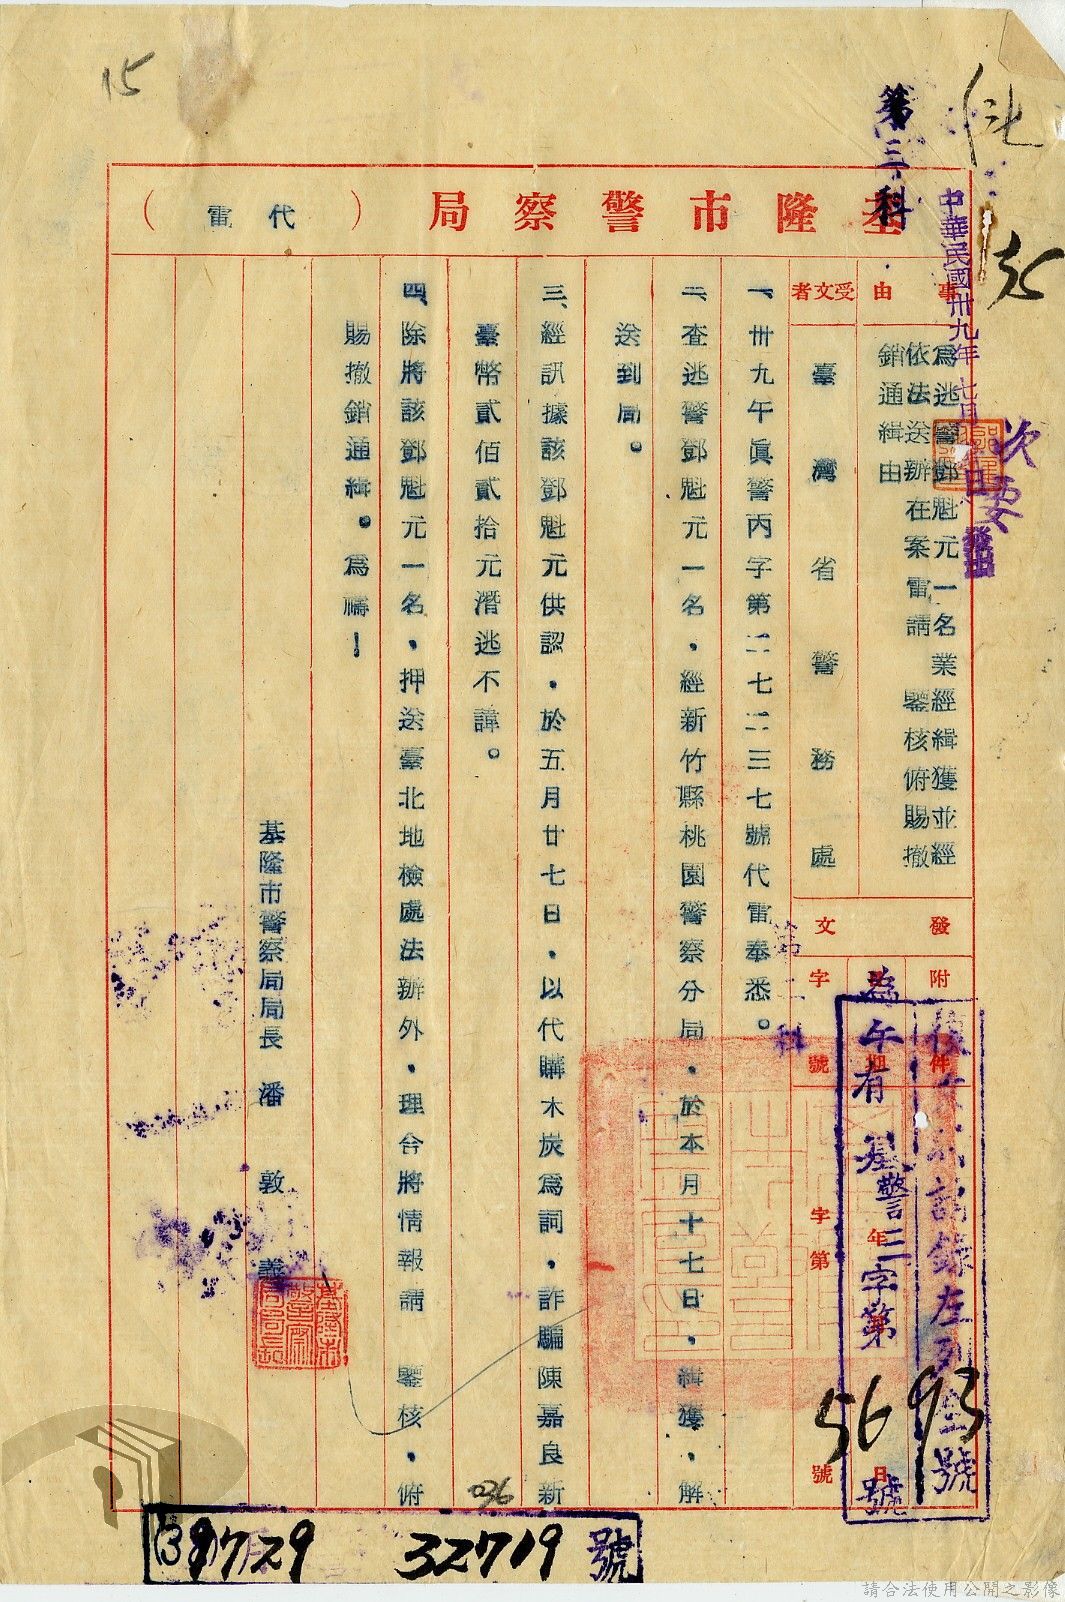 15
第三科
基隆市警察局（代電）
中華民國卅九年七月
發出
次要
事由
爲逃警鄧魁元一名業經緝獲並經
依法送辦在案電請　鑒核俯賜撤
銷通緝由
受文者
臺灣省警務處
發文
附件
日期
年
日
字號
字第
號
復文請錄左列全號
午有基警三字第
5693
號
第二科
一、卅九午眞警丙字第二七二三七號代電奉悉。
二、查逃警鄧魁元一名，經新竹縣桃園警察分局，於本月十七日，緝獲，解
送到局。
三、經訊據該鄧魁元供認，於五月廿七日，以代購木炭爲詞，詐騙陳嘉良新
臺幣貳佰貳拾元潛逃不諱。
四、除將該鄧魁元一名，押送臺北地檢處法辦外，理合將情報請　鑒核，俯
賜撤銷通緝。爲禱！
基隆市警察局局長　潘敦義
基隆市警察局局長
036
32719
號
請合法使用公開之影像